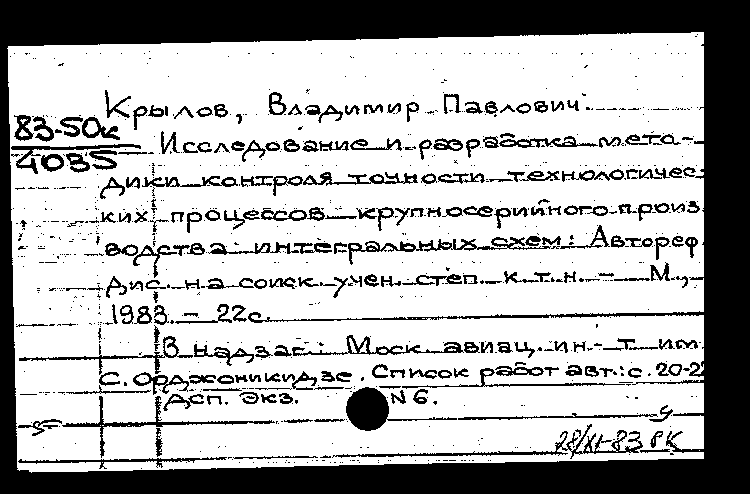 Крылов, Владимир Павлович.
83-50к
4035
Исследование и разработка мето-
дики контроля точности технологичес-
ких процессов крупносерийного произ
водства интегральных схем: Автореф.
Дис. на соиск. учен. степ. к.т.н. – М.,
1983. – 22с.
В надзаг.: Моск. авиац. ин-т им.
С. Орджоникидзе. Список работ авт.: с. 20-22
Дсп. Экз. N 6.
28/XI-83